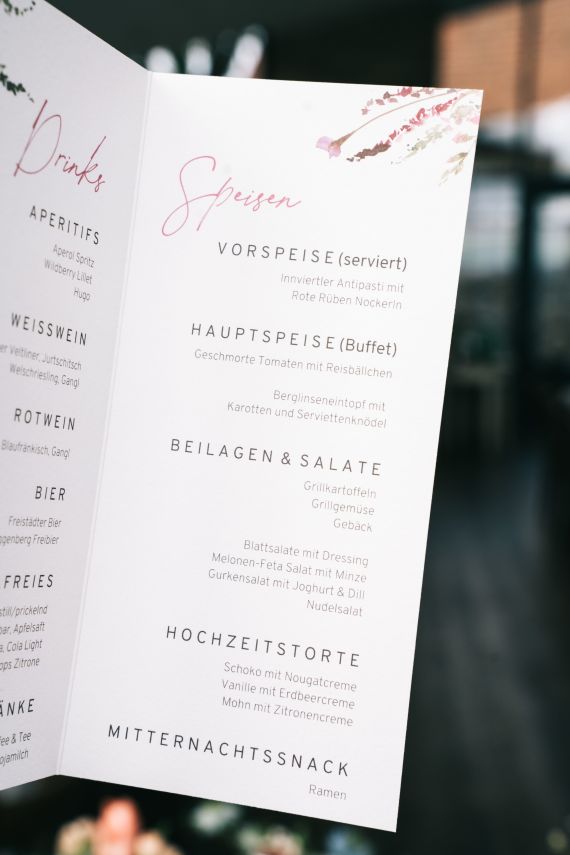 Drinks
APERITIFS
Aperol Spritz
Wildberry Lillet
Hugo
WEISSWEIN
Veltliner, Jurtschitsch
Welschriesling, Gangl
ROTWEIN
Blaufränkisch, Gangl
BIER
Freistädter Bier
Freibier
FREIES
still/prickelnd
Apfelsaft
Cola Light
Zitrone
& Tee
Speisen
VORSPEISE (serviert)
Innviertler Antipasti mit
Rote Rüben Nockerln
HAUPTSPEISE (Buffet)
Geschmorte Tomaten mit Reisbällchen
Berglinseneintopf mit
Karotten und Serviettenknödel
BEILAGEN & SALATE
Grillkartoffeln
Grillgemüse
Gebäck
Blattsalate mit Dressing
Melonen-Feta Salat mit Minze
Gurkensalat mit Joghurt & Dill
Nudelsalat
HOCHZEITSTORTE
Schoko mit Nougatcreme
Vanille mit Erdbeercreme
Mohn mit Zitronencreme
MITTERNACHTSSNACK
Ramen